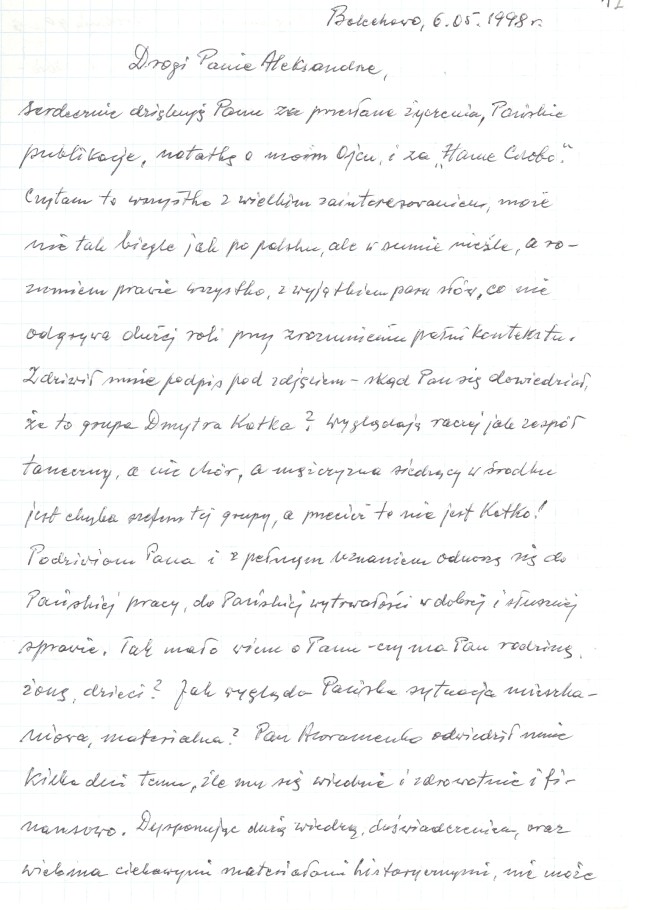 Bolechowo, 6.05.1998 r.
Drogi Panie Aleksandrze,
serdecznie dziękuję Panu za przesłane życzenia, Pańskie
publikacje, notatkę o moim Ojcu, i za „Наше Слово".
Czytam to wszystko z wielkim zainteresowaniem, może
nie tak biegle jak po polsku, ale w sumie nieźle, a ro-
zumiem prawie wszystko, z wyjątkiem paru słów, co nie
odgrywa dużej roli przy zrozumieniu pełni kontekstu.
Zdziwił mnie podpis pod zdjęciem - skąd Pan się dowiedział,
że to grupa Dmytra Kotka? Wyglądają raczej jak zespół
taneczny, a nie chór, a mężczyzna siedzący w środku
jest chyba szefem tej grupy, a przecież to nie jest Kotko!
Podziwiam Pana i z pełnym uznaniem odnoszę się do
Pańskiej pracy, do Pańskiej wytrwałości w dobrej i słusznej
sprawie. Tak mało wiem o Panu - czy ma Pan rodzinę,
żonę, dzieci? Jak wygląda Pańska sytuacja mieszka-
niowa, materialna? Pan odwiedził mnie
kilka dni temu, źle mu się wiedzie i zdrowotnie i fi-
nansowo. Dysponując dużą wiedzą, doświadczeniem, oraz
wieloma ciekawymi materiałami historycznymi, nie może